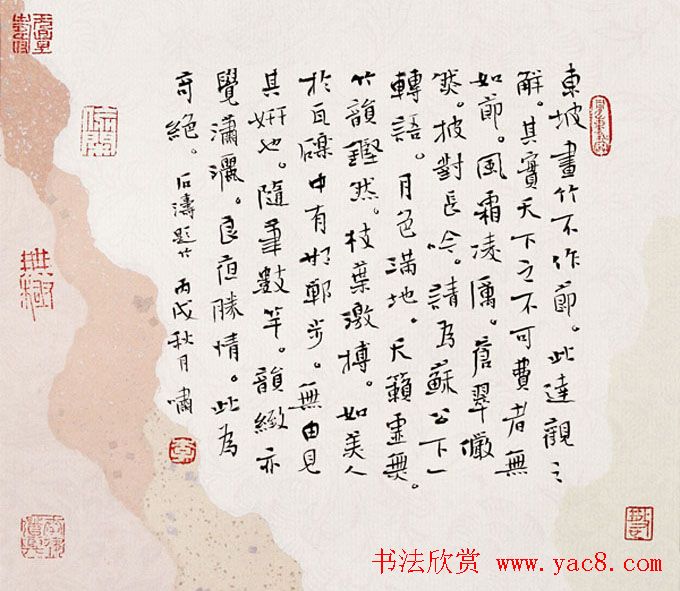 東坡畫竹不作節。此達觀之
解。其實天下之不可費者無
如節。風霜凌厲。蒼翠儼
然。披對長吟。請為蘇公下一
轉語。月色滿地。天籟虛無。
竹韻鏗然。枝葉激搏。如美人
於瓦礫中有邯鄲步。無由見
其妍也。隨筆數竿。韻緻亦
覺瀟灑。良宵勝情。此為
奇絕。石濤題竹 丙戌秋月 嘯
书法欣赏 www.yac8.com